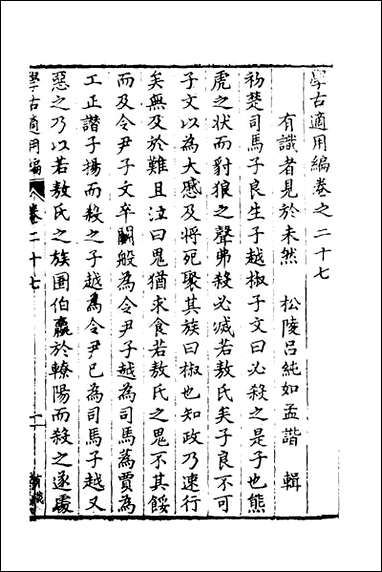 學古適用編卷之二十七
有識者見於未然 松陵呂純如孟諧 輯
初楚司馬子良生子越椒子文曰必殺之是子也熊
虎之狀而豺狼之聲弗殺必滅若敖氏矣子良不可
子文以為大慼及將死聚其族曰椒也知政乃速行
矣無及於難且泣曰鬼猶求食若敖氏之鬼不其餒
而及令尹子文卒鬬般為令尹子越為司馬蒍賈為
工正譖子揚而殺之子越為令尹已為司馬子越又
惡之乃以若敖氏之族圄伯嬴於轑陽而殺之遂處
學古適用編 卷二十七 一